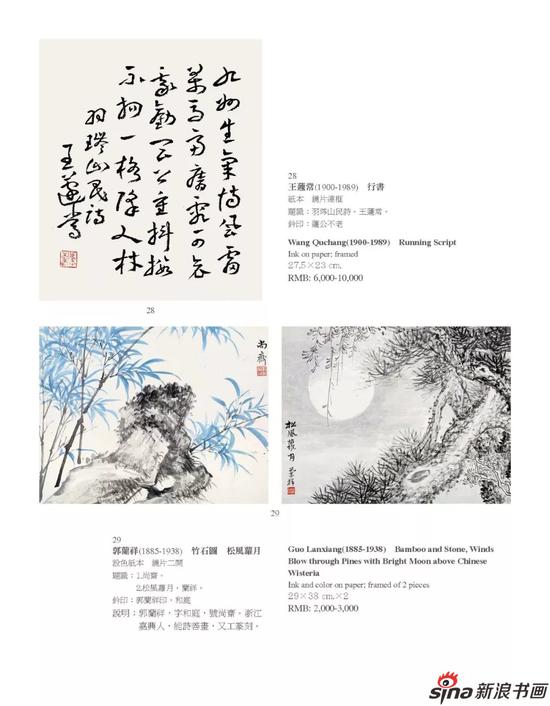 九州生氣恃風雷
萬馬齊瘖究可哀
我勸天公重抖擻
不拘一格降人材
羽琌山民詩
王蘧常
28
28
王蘧常(1900-1989) 行書
紙本 鏡片連框
題識：羽琌山民詩。王蘧常。
鈐印：蘧公不老
Wang Quchang(1900-1989) Running Script
Ink on paper; framed
27.5×23 cm.
RMB: 6,000-10,000
尚齋
松風蘿月 蘭祥
29
29
郭蘭祥(1885-1938) 竹石圖 松風蘿月
設色紙本 鏡片二開
題識：1.尚齋。
2.松風蘿月，蘭祥。
鈐印：郭蘭祥印、和庭
說明：郭蘭祥，字和庭，號尚齋。浙江
嘉興人，能詩善畫，又工篆刻。
Guo Lanxiang(1885-1938) Bamboo and Stone, Winds
Blow through Pines with Bright Moon above Chinese
Wisteria
Ink and color on paper; framed of 2 pieces
29×38 cm.×2
RMB: 2,000-3,000
sina新浪书画